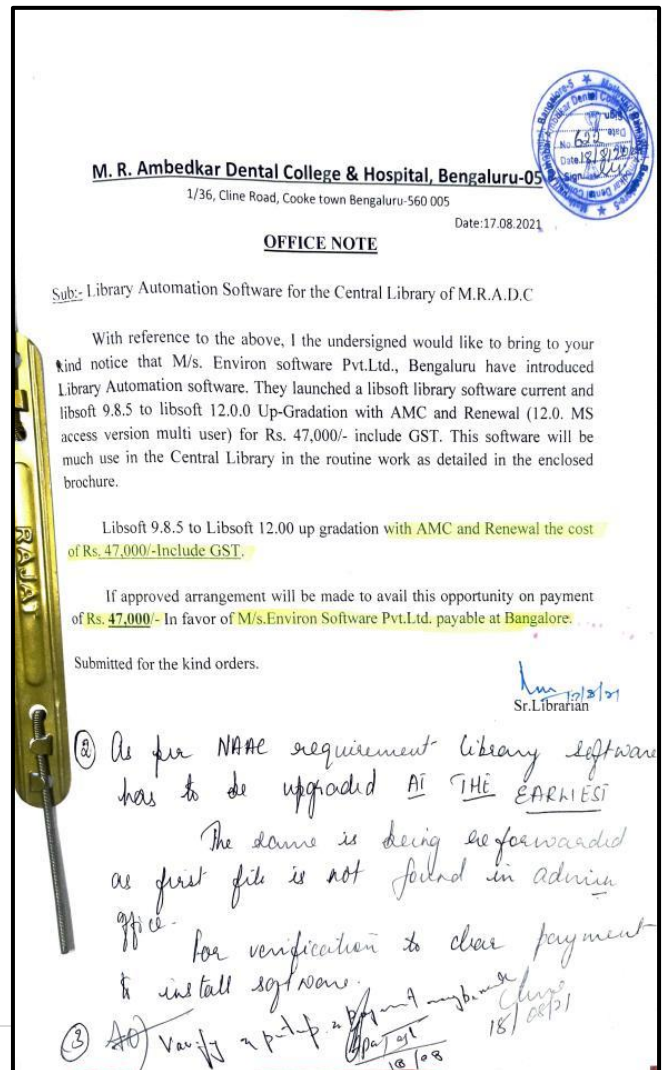 No. 622
Date 18/8/2021
M. R. Ambedkar Dental College & Hospital, Bengaluru-05
1/36, Cline Road, Cooke town Bengaluru-560 005
Date:17.08.2021
OFFICE NOTE
Sub:- Library Automation Software for the Central Library of M.R.A.D.C
With reference to the above, I the undersigned would like to bring to your
kind notice that M/s. Environ software Pvt.Ltd., Bengaluru have introduced
Library Automation software. They launched a libsoft library software current and
libsoft 9.8.5 to libsoft 12.0.0 Up-Gradation with AMC and Renewal (12.0. MS
access version multi user) for Rs. 47,000/- include GST. This software will be
much use in the Central Library in the routine work as detailed in the enclosed
brochure.
Libsoft 9.8.5 to Libsoft 12.00 up gradation with AMC and Renewal the cost
of Rs. 47,000/-Include GST.
If approved arrangement will be made to avail this opportunity on payment
of Rs. 47,000/- In favor of M/s.Environ Software Pvt.Ltd. payable at Bangalore.
Submitted for the kind orders.
Sr.Librarian
RAJA
② As per NAAC requirement library software
has to be upgraded AT THE EARLIEST
The same is being reforwarded
as first file is not found in admin
office.
For verification to clear payment
& install software.
18/08/21
③ AO) Verify & putup
18/08